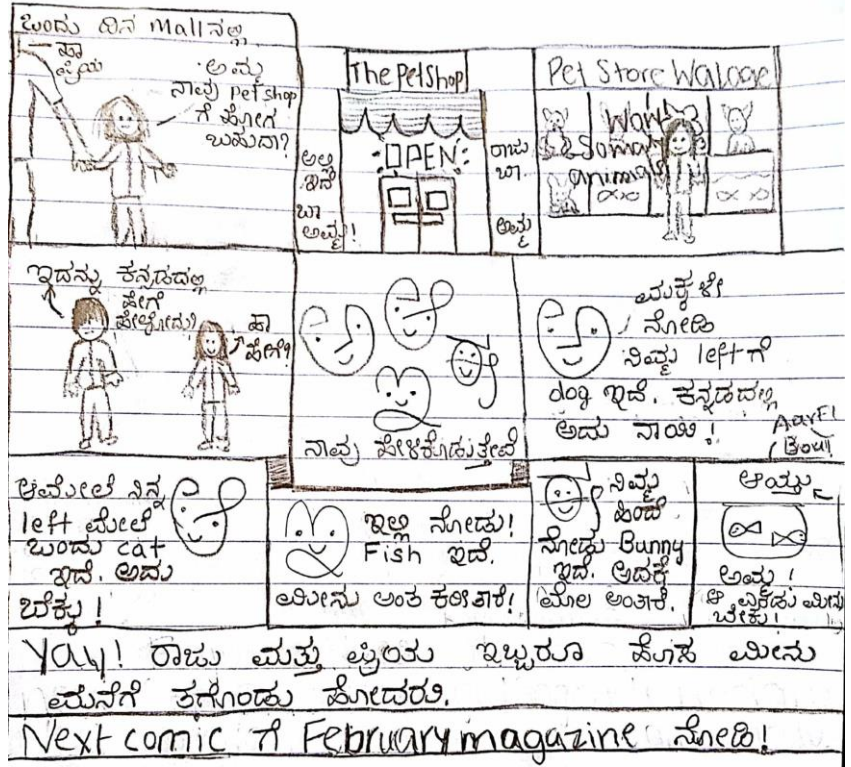 ಒಂದು ದಿನ mall ನಲ್ಲಿ
ಹಾ
ಪ್ರಿಯ
ಅಮ್ಮ
ನಾವು pet shop
ಗೆ ಹೋಗ
ಬಹುದಾ?
The Pet Shop
OPEN
ಅಲ್ಲಿ
ಇದೆ
ಬಾ
ಅಮ್ಮ!
ರಾಜು
ಬಾ.
ಅಮ್ಮ
Pet Store
Wow
animals
ಇದನ್ನು ಕನ್ನಡದಲ್ಲಿ
ಹೇಗೆ
ಹೇಳೋದು?
ಹಾ
ಹೇಗೆ?
ನಾವು ಹೇಳಿಕೊಡುತ್ತೇವೆ
ಮಕ್ಕಳೇ
ನೋಡಿ
ನಿಮ್ಮ left ಗೆ
dog ಇದೆ. ಕನ್ನಡದಲ್ಲಿ
ಅದು ನಾಯಿ!
ಆಮೇಲೆ ನಿನ್ನ
left ಮೇಲೆ
ಒಂದು cat
ಇದೆ. ಅದು
ಬೆಕ್ಕು!
ಇಲ್ಲಿ ನೋಡು!
Fish ಇದೆ.
ಮೀನು ಅಂತ ಕರೀತಾರೆ!
ನಿಮ್ಮ
ಹಿಂದೆ
ನೋಡು Bunny
ಇದೆ. ಅದಕ್ಕೆ
ಮೊಲ ಅಂತಾರೆ.
ಆಯ್ತು
ಅಮ್ಮ!
ಆ ಎರಡು ಮೀನು
ಬೇಕು!
Yay! ರಾಜು ಮತ್ತು ಪ್ರಿಯಾ ಇಬ್ಬರೂ ಹೊಸ ಮೀನು
ಮನೆಗೆ ತಗೊಂಡು ಹೋದರು.
Next comic ಗೆ February magazine ನೋಡಿ!